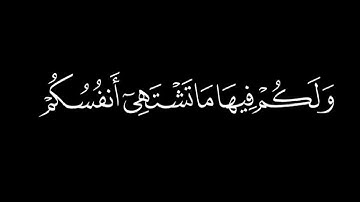 وَلَكُمْ فِيهَا مَا تَشْتَهِىٓ أَنفُسُكُمْ